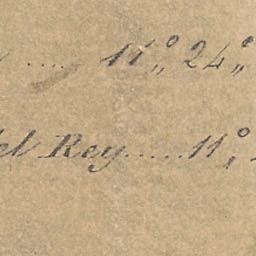 ..... 11°„ 24°„
el Rey......11°,